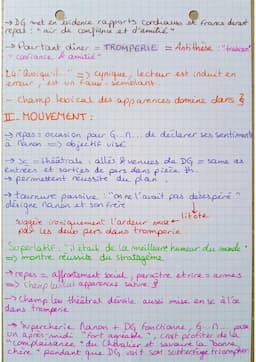 → DG met en évidence rapports cordiaux et francs durant
repas : "air de confiance et d'amitié"
→ Pourtant dîner = TROMPERIE = Antithèse : "trahison"
"confiance & amitié"
L4 "Quoiqu'il" => cynique, lecteur est induit en
erreur, est un faux-semblant.
- Champ lexical des apparences domine dans §
II. MOUVEMENT :
→ repas = occasion pour G... N... de déclarer ses sentiments
à Manon => objectif visé
→ sc = théâtrale : allés & venues de DG = same as
entrées et sorties de pers dans pièce th.
→ permettent réussite du plan.
→ tournure passive "on ne l'avait pas désespéré"
désigne Manon et son frère
litote
suggère ironiquement l'ardeur mise
par les deux pers dans tromperie.
Superlatif : "il était de la meilleure humeur du monde"
=> montre réussite du stratagème.
→ repas = affrontement social, paraître et rire = armes
=> Champ lexical apparences suivre §
→ Champ lex théâtral dévoile aussi mise en sc à l'œ
dans tromperie
→ Supercherie Manon + DG fonctionne, G... M... passe
un après midi "fort agréable", croit profiter de la
"complaisance" du Chevalier et savoure la bonne
chère, pendant que DG voit son subterfuge triompher